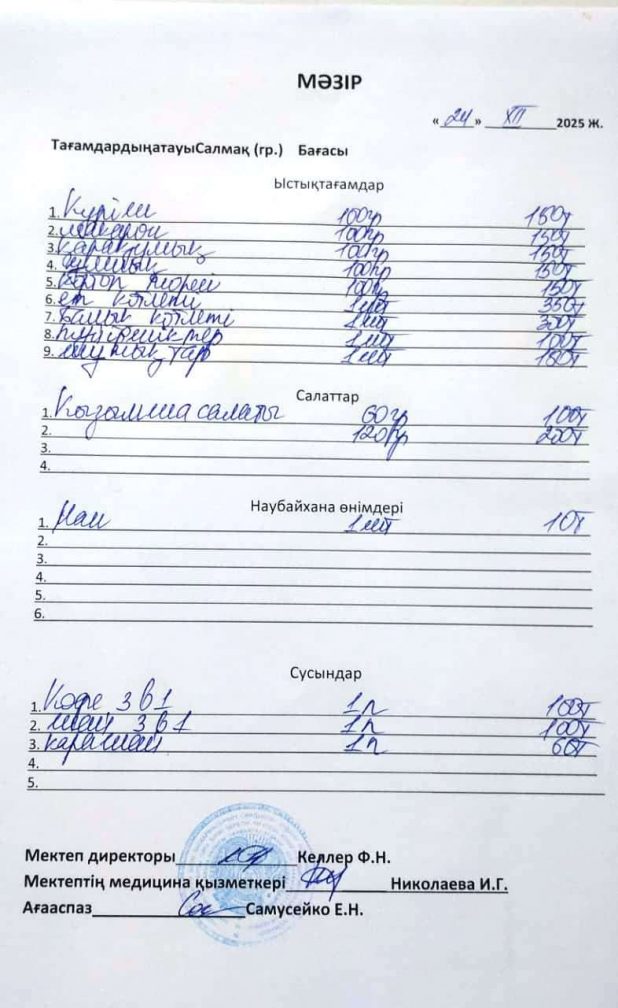 МӘЗІР
«24» XII 2025 Ж.
ТағамдардыңатауыСалмақ (гр.) Бағасы
Ыстықтағамдар
1. Күріш 100гр 150т
2. макарон 100гр 150т
3. қарақұмық 100гр 150т
4. 100гр 150т
5. картоп пюреси 100гр 150т
6. ет котлеті 1шт 350т
7. балық котлеті 1шт 300т
8. 1шт 100т
9. шұжықтар 1шт 180т
Салаттар
1. Қызылша салаты 60гр 100т
2. 120гр 200т
3.
4.
Наубайхана өнімдері
1. Нан 1шт 10т
2.
3.
4.
5.
6.
Сусындар
1. Кофе 3в1 1п 100т
2. шай 3в1 1п 100т
3. қара шай 1п 60т
4.
5.
Мектеп директоры Келлер Ф.Н.
Мектептің медицина қызметкері Николаева И.Г.
Ағааспаз Самусейко Е.Н.